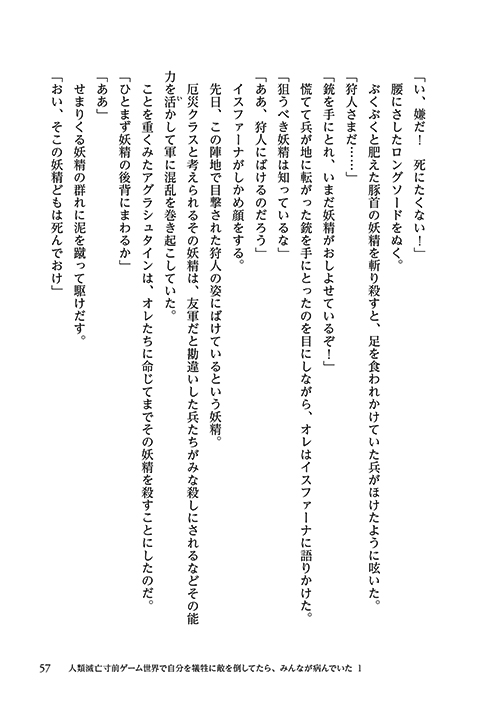 「い、嫌だ！　死にたくない！」
腰にさしたロングソードをぬく。
ぶくぶくと肥えた豚首の妖精を斬り殺すと、足を食われかけていた兵がほけたように呟いた。
「狩人さまだ……」
「銃を手にとれ、いまだ妖精がおしよせているぞ！」
慌てて兵が地に転がった銃を手にとったのを目にしながら、オレはイスファーナに語りかけた。
「狙うべき妖精は知っているな」
「ああ、狩人にばけるのだろう」
イスファーナがしかめ顔をする。
先日、この陣地で目撃された狩人の姿にばけているという妖精。
厄災クラスと考えられるその妖精は、友軍だと勘違いした兵たちがみな殺しにされるなどその能
力を活かして軍に混乱を巻き起こしていた。
ことを重くみたアグラシュタインは、オレたちに命じてまでその妖精を殺すことにしたのだ。
「ひとまず妖精の後背にまわるか」
「ああ」
せまりくる妖精の群れに泥を蹴って駆けだす。
「おい、そこの妖精どもは死んでおけ」
57　人類滅亡寸前ゲーム世界で自分を犠牲に敵を倒してたら、みんなが病んでいた 1